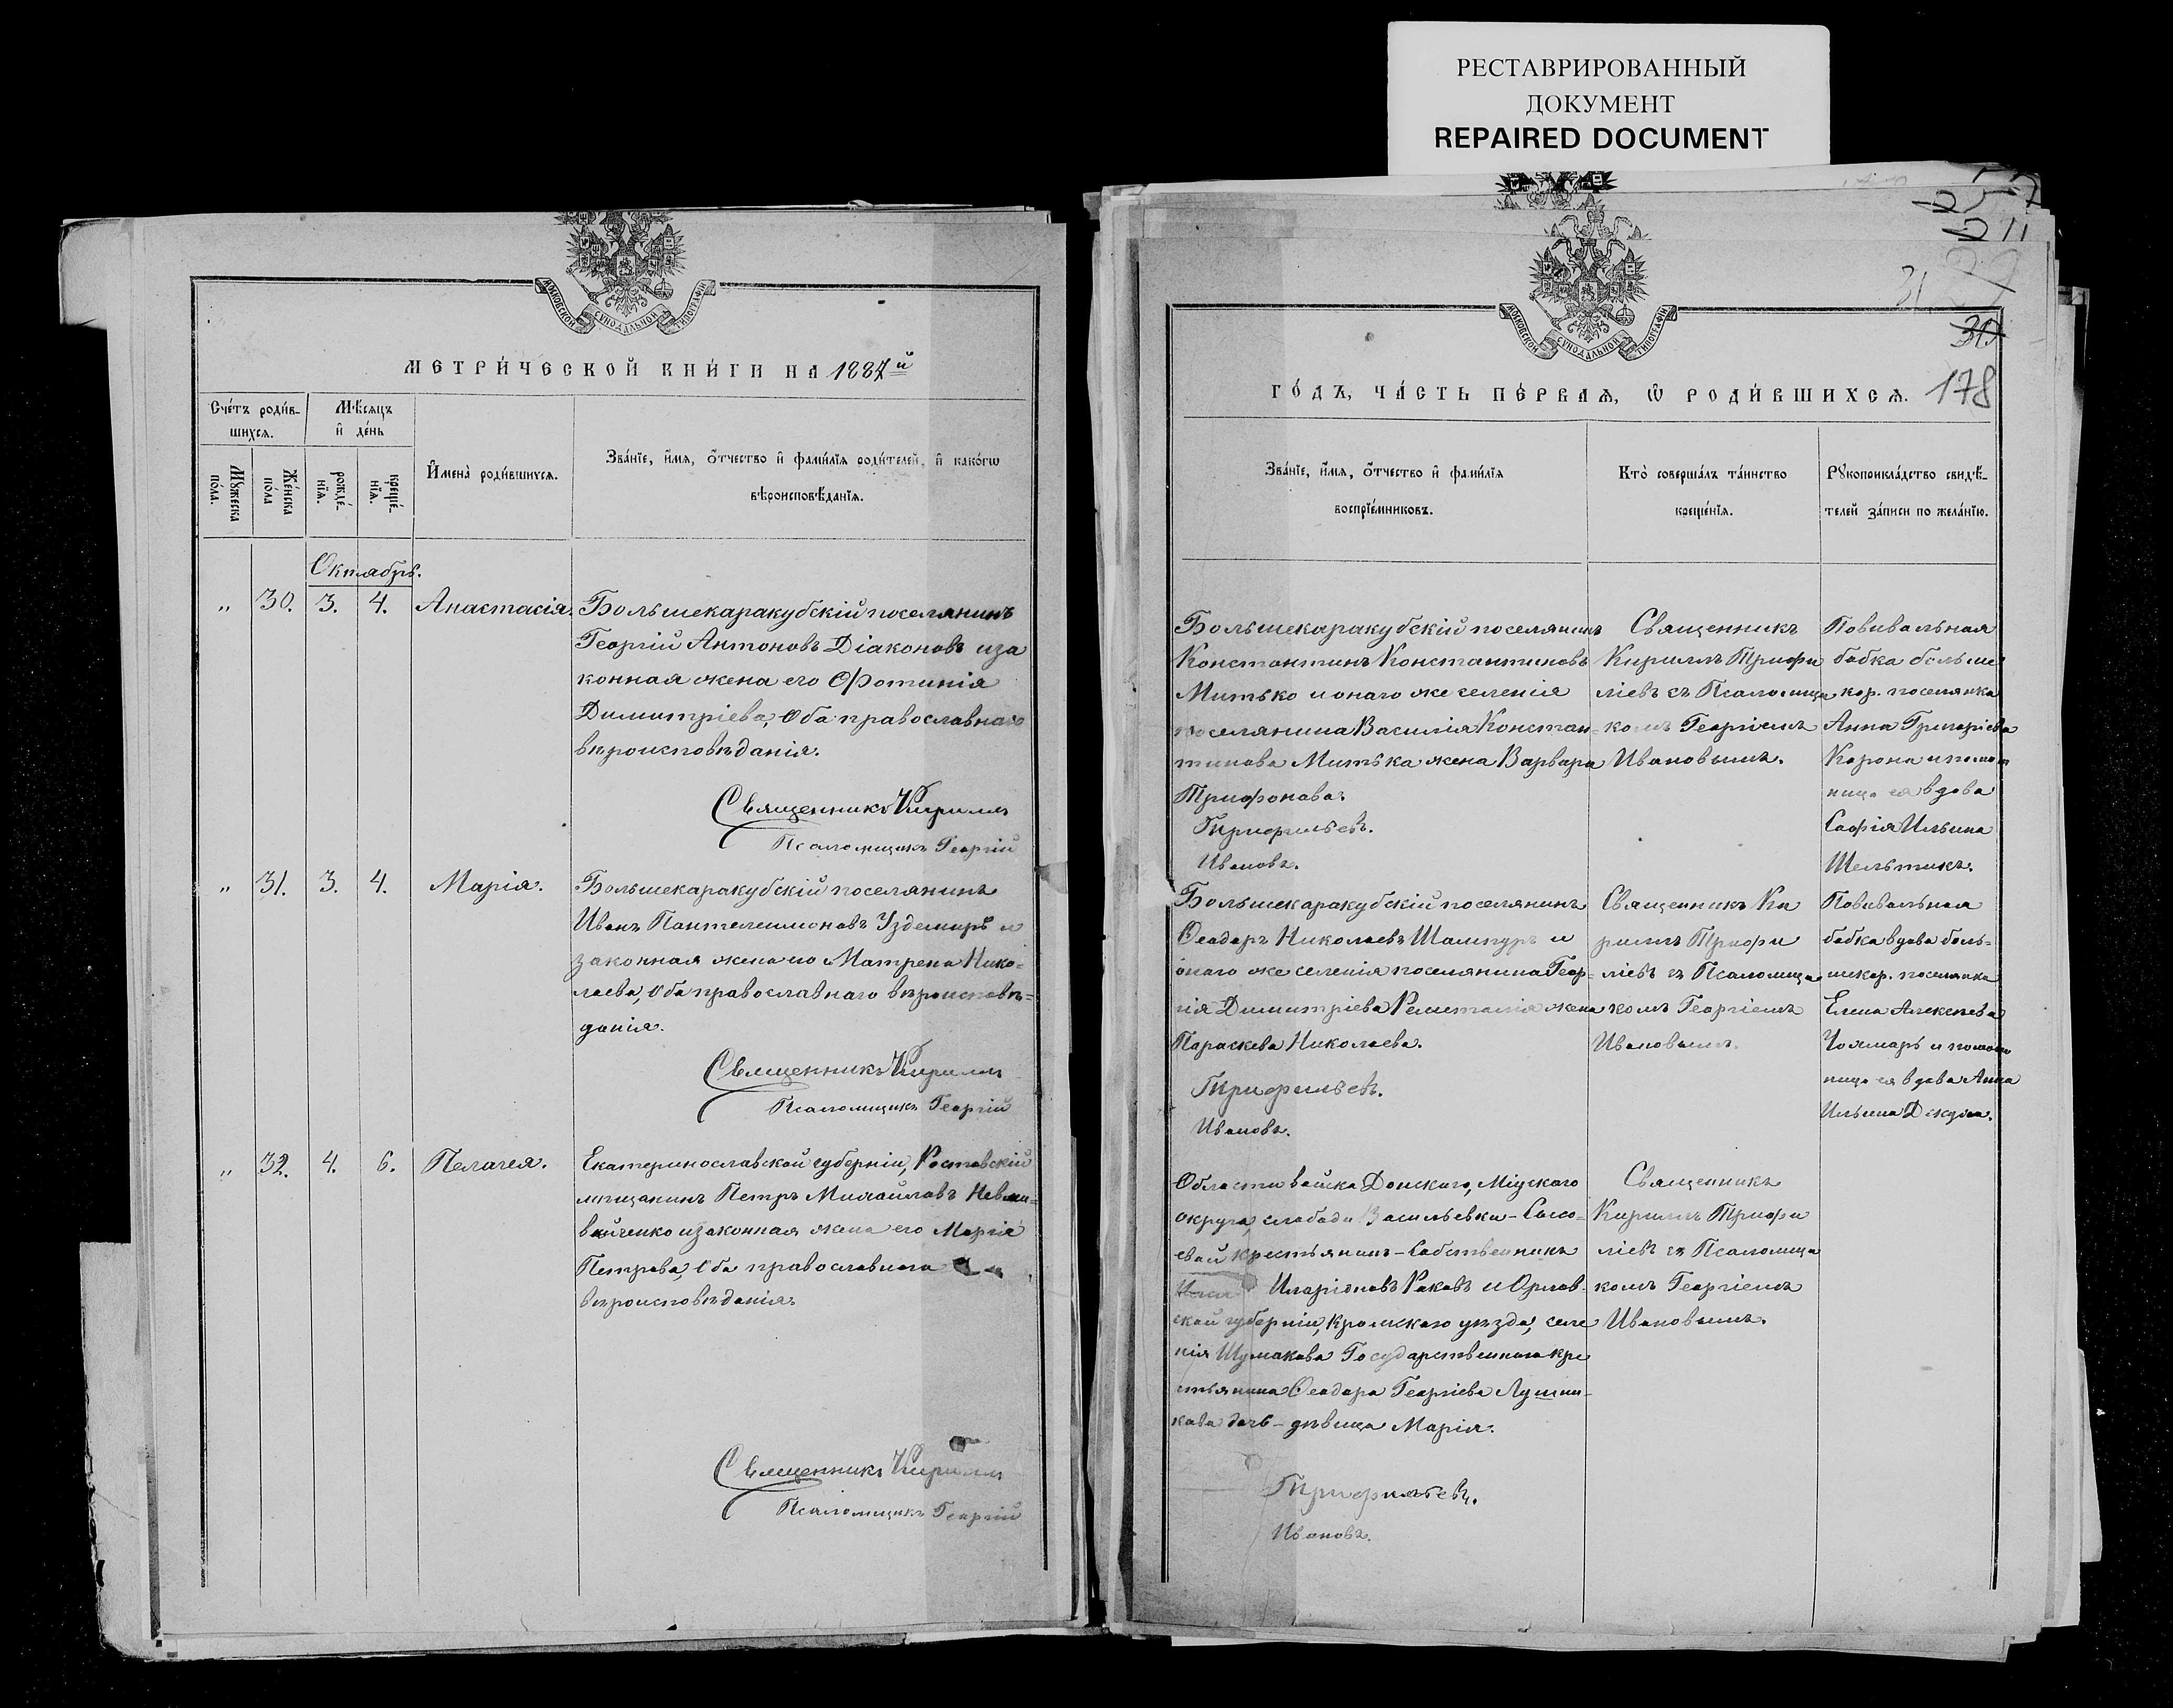 РЕСТАВРИРОВАННЫЙ
ДОКУМЕНТ
REPAIRED DOCUMENT
МОСКОВСКОЙ СУНОДАЛЬНОЙ ТИПОГРАФІИ
МЕТРИ́ЧЕСКОЙ КНИ́ГИ НА 1887й
Сче́тъ роди́в-
шихсѧ.
Мѣ́сяцъ
и҆ де́нь
Мꙋ́жеска
по́ла.
Же́нска
по́ла
рожде́-
нїѧ.
креще́-
нїѧ.
И҆мена̀ роди́вшихсѧ.
Зва́нїе, и҆́мѧ, ѻ҆́тчество и҆ фами́лїѧ роди́телей, и҆ како́гѡ
вѣроисповѣ́данїѧ.
Октябрь.
„ 30. 3. 4. Анастасія.
Большекаракубскій поселянинъ
Георгій Антоновъ Діаконовъ и за
конная жена его Фотинія
Димитріева, оба православнаго
вѣроисповѣданія.
Священникъ Кириллъ
Псаломщикъ Георгій
„ 31. 3. 4. Марія.
Большекаракубскій поселянинъ
Иванъ Пантелеимоновъ Уздемиръ и
законная жена его Матрена Нико-
лаева, оба православнаго вѣроисповѣ-
данія.
Священникъ Кириллъ
Псаломщикъ Георгій
„ 32. 4. 6. Пелагея.
Екатеринославской губерніи, Ростовскій
мѣщанинъ Петръ Михайловъ
и законная жена его Марія
Петрова, оба православнаго
вѣроисповѣданія.
Священникъ Кириллъ
Псаломщикъ Георгій
257
211
31
317
178
МОСКОВСКОЙ СУНОДАЛЬНОЙ ТИПОГРАФІИ
ГО́ДЪ, ЧА́СТЬ ПЕ́РВАѦ, Ѡ҆ РОДИ́ВШИХСѦ.
Зва́нїе, и҆́мѧ, ѻ҆́тчество и҆ фами́лїѧ
воспрїе́мниковъ.
Кто̀ соверша́лъ та́инство
креще́нїѧ.
Рꙋкоприкла́дство свидѣ́-
телей за́писи по жела́нїю.
Большекаракубскій поселянинъ
Константинъ Константиновъ
Митько и онаго же селенія
поселянина Василія Констан-
тинова Митька жена Варвара
Трифонова.
Трифильевъ.
Ивановъ.
Священникъ
Кириллъ Трифи
ліевъ съ Псаломщи
комъ Георгіемъ
Ивановымъ.
Повивальная
бабка больше
кар. поселянка
Анна Григоріева
Карона и помощ
ница ея вдова
Софія Ильина
Шельтикъ.
Большекаракубскій поселянинъ
Ѳеодоръ Николаевъ Шашуръ и
онаго же селенія поселянина Геор-
гія Димитріева жена
Параскева Николаева.
Трифильевъ.
Ивановъ.
Священникъ Ки
риллъ Трифи
ліевъ съ Псаломщи
комъ Георгіемъ
Ивановымъ.
Повивальная
бабка вдова боль-
шекар. поселянка
Елена Алексѣева
и помощ
ница ея вдова Анна
Ильина
Области войска Донскаго, Міускаго
округа, слободы Васильевки-
крестьянинъ-собственникъ
Иларіоновъ Раковъ и Орлов-
ской губерніи, Кромскаго уѣзда, селе
нія Шумакова Государственнаго кре
стьянина Ѳеодора Георгіева
дочь-дѣвица Марія.
Трифильевъ.
Ивановъ.
Священникъ
Кириллъ Трифи
ліевъ съ Псаломщи
комъ Георгіемъ
Ивановымъ.